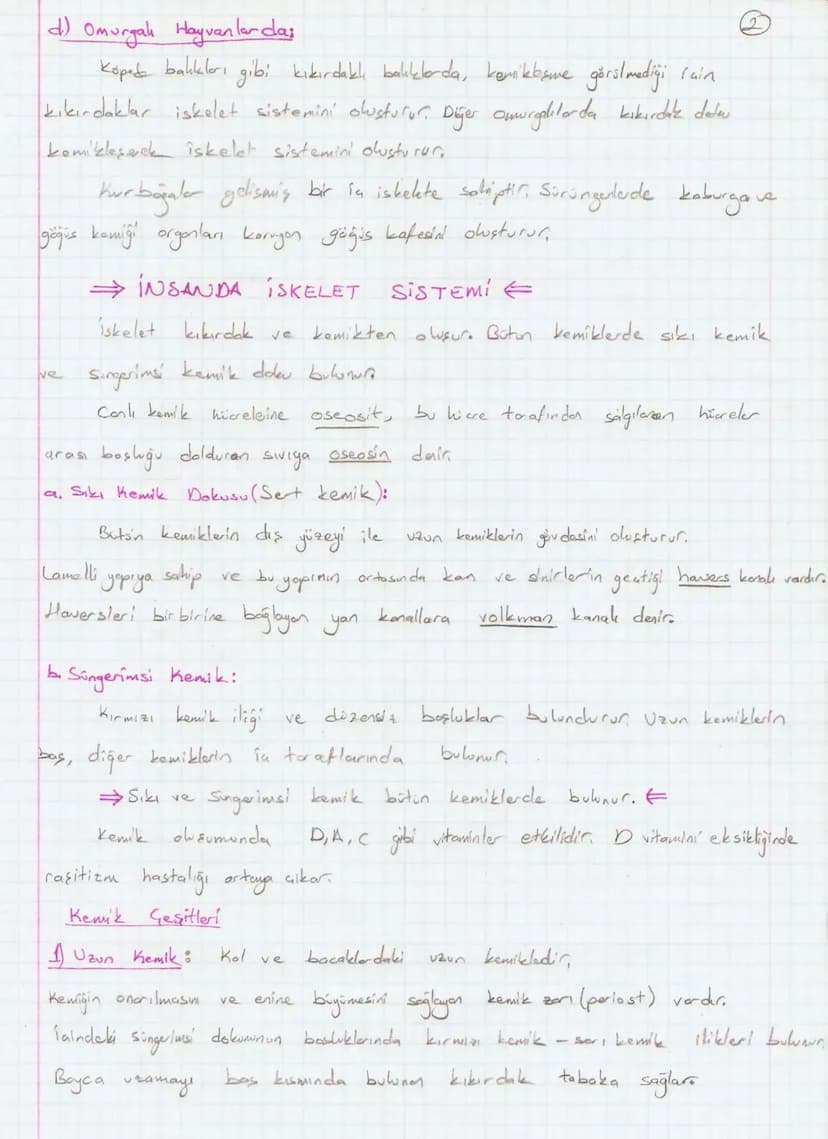 2
d) Omurgalı Hayvanlarda;
Köpek balıkları gibi kıkırdaklı balıklarda, kemikleşme görülmediği için
kıkırdaklar iskelet sistemini oluşturur. Diğer omurgalılarda kıkırdak doku
kemikleşerek iskelet sistemini oluşturur.
Kurbağalar gelişmiş bir iç iskelete sahiptir. Sürüngenlerde kaburga ve
göğüs kemiği organları koruyan göğüs kafesini oluşturur.
⇒ İNSANDA İSKELET SİSTEMİ ⇐
İskelet kıkırdak ve kemikten oluşur. Bütün kemiklerde sıkı kemik
ve süngerimsi kemik doku bulunur.
Canlı kemik hücrelerine oseosit, bu hücre tarafından salgılanan hücreler
arası boşluğu dolduran sıvıya oseosin denir.
a. Sıkı Kemik Dokusu (Sert kemik):
Bütün kemiklerin dış yüzeyi ile uzun kemiklerin gövdesini oluşturur.
Lamelli yapıya sahip ve bu yapının ortasında kan ve sinirlerin geçtiği havers kanalı vardır.
Haversleri birbirine bağlayan yan kanallara volkman kanalı denir.
b. Süngerimsi Kemik:
Kırmızı kemik iliği ve düzensiz boşluklar bulundurur. Uzun kemiklerin
baş, diğer kemiklerin iç taraflarında bulunur.
⇒ Sıkı ve Süngerimsi kemik bütün kemiklerde bulunur. ⇐
Kemik oluşumunda D, A, C gibi vitaminler etkilidir. D vitamini eksikliğinde
raşitizm hastalığı ortaya çıkar.
Kemik Çeşitleri
1) Uzun Kemik: Kol ve bacaklardaki uzun kemikledir,
Kemiğin onarılmasını ve enine büyümesini sağlayan kemik zarı (periost) vardır.
İçindeki süngerimsi dokunun boşluklarında kırmızı kemik - sarı kemik ilikleri bulunur.
Boyca uzamayı baş kısmında bulunan kıkırdak tabaka sağlar.